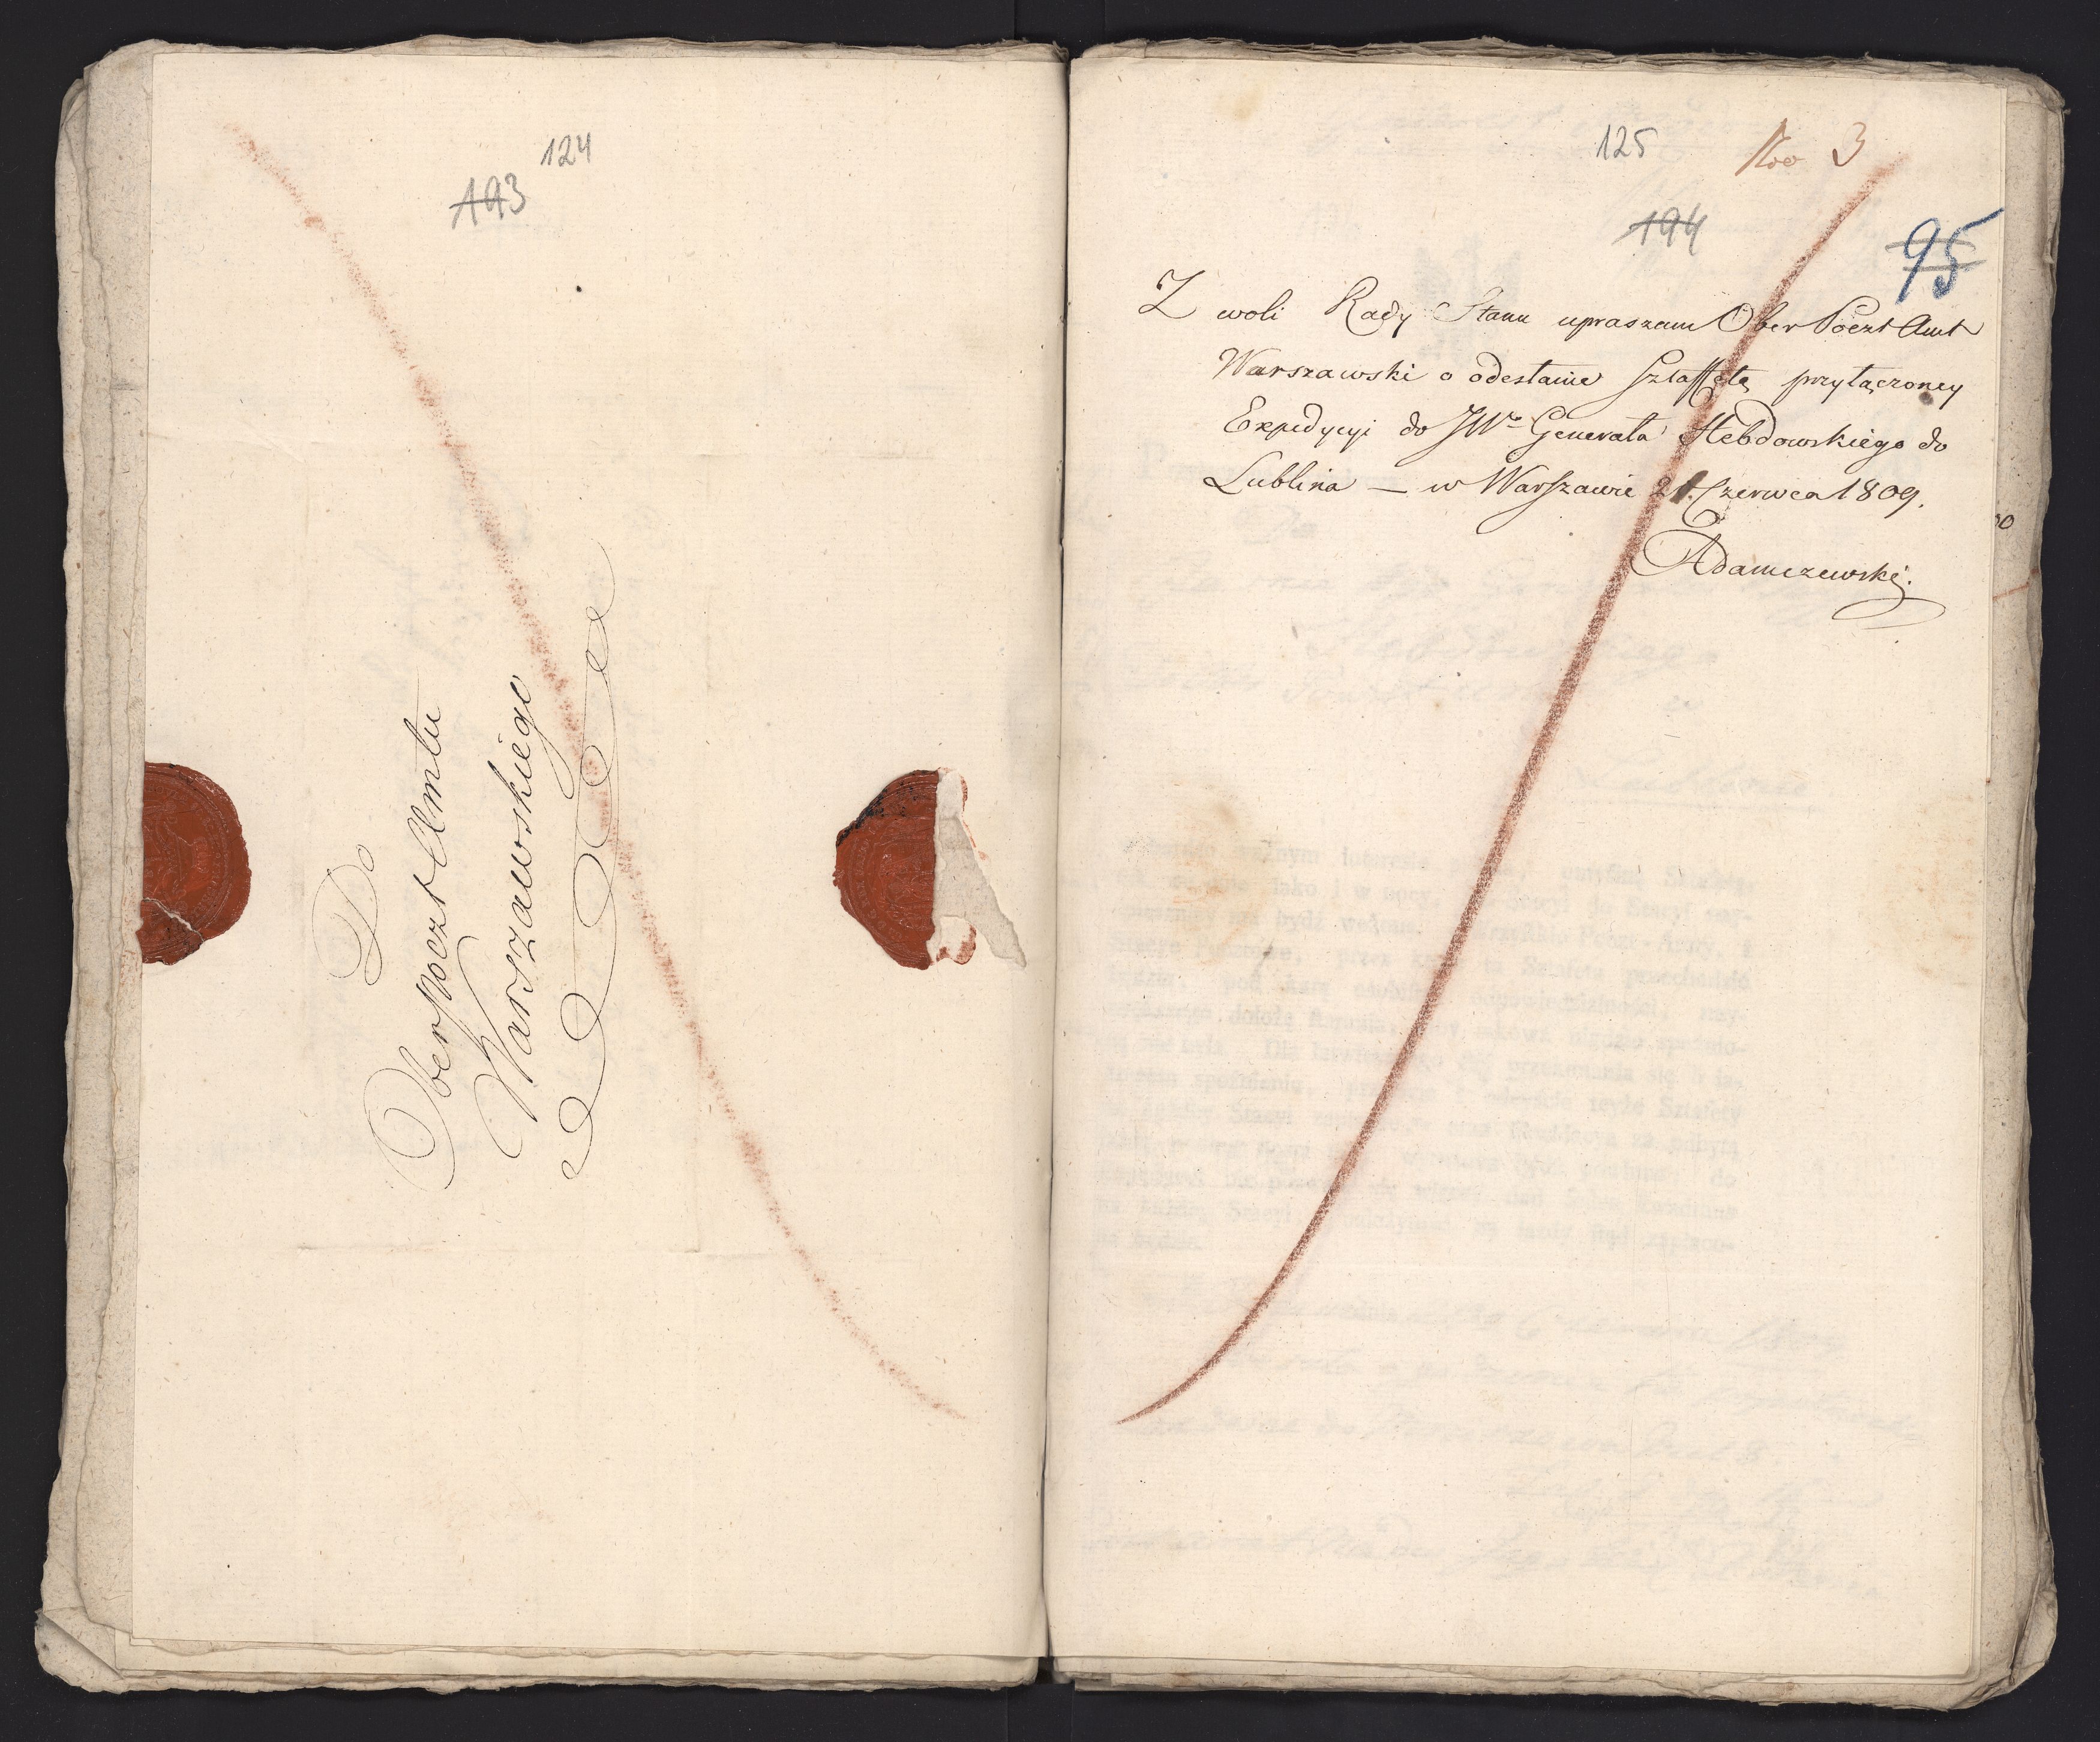 124
193
Do
OberPoczt Amtu
Warszawskiego
125
Nro 3
194
95
Z woli Rady Stanu upraszam Ober Poczt Amt
Warszawski o odesłanie sztaffetą przyłączoney
Expedycyi do JWo Generała Hebdowskiego do
Lublina — w Warszawie 21. Czerwca 1809.
Adamczewski.